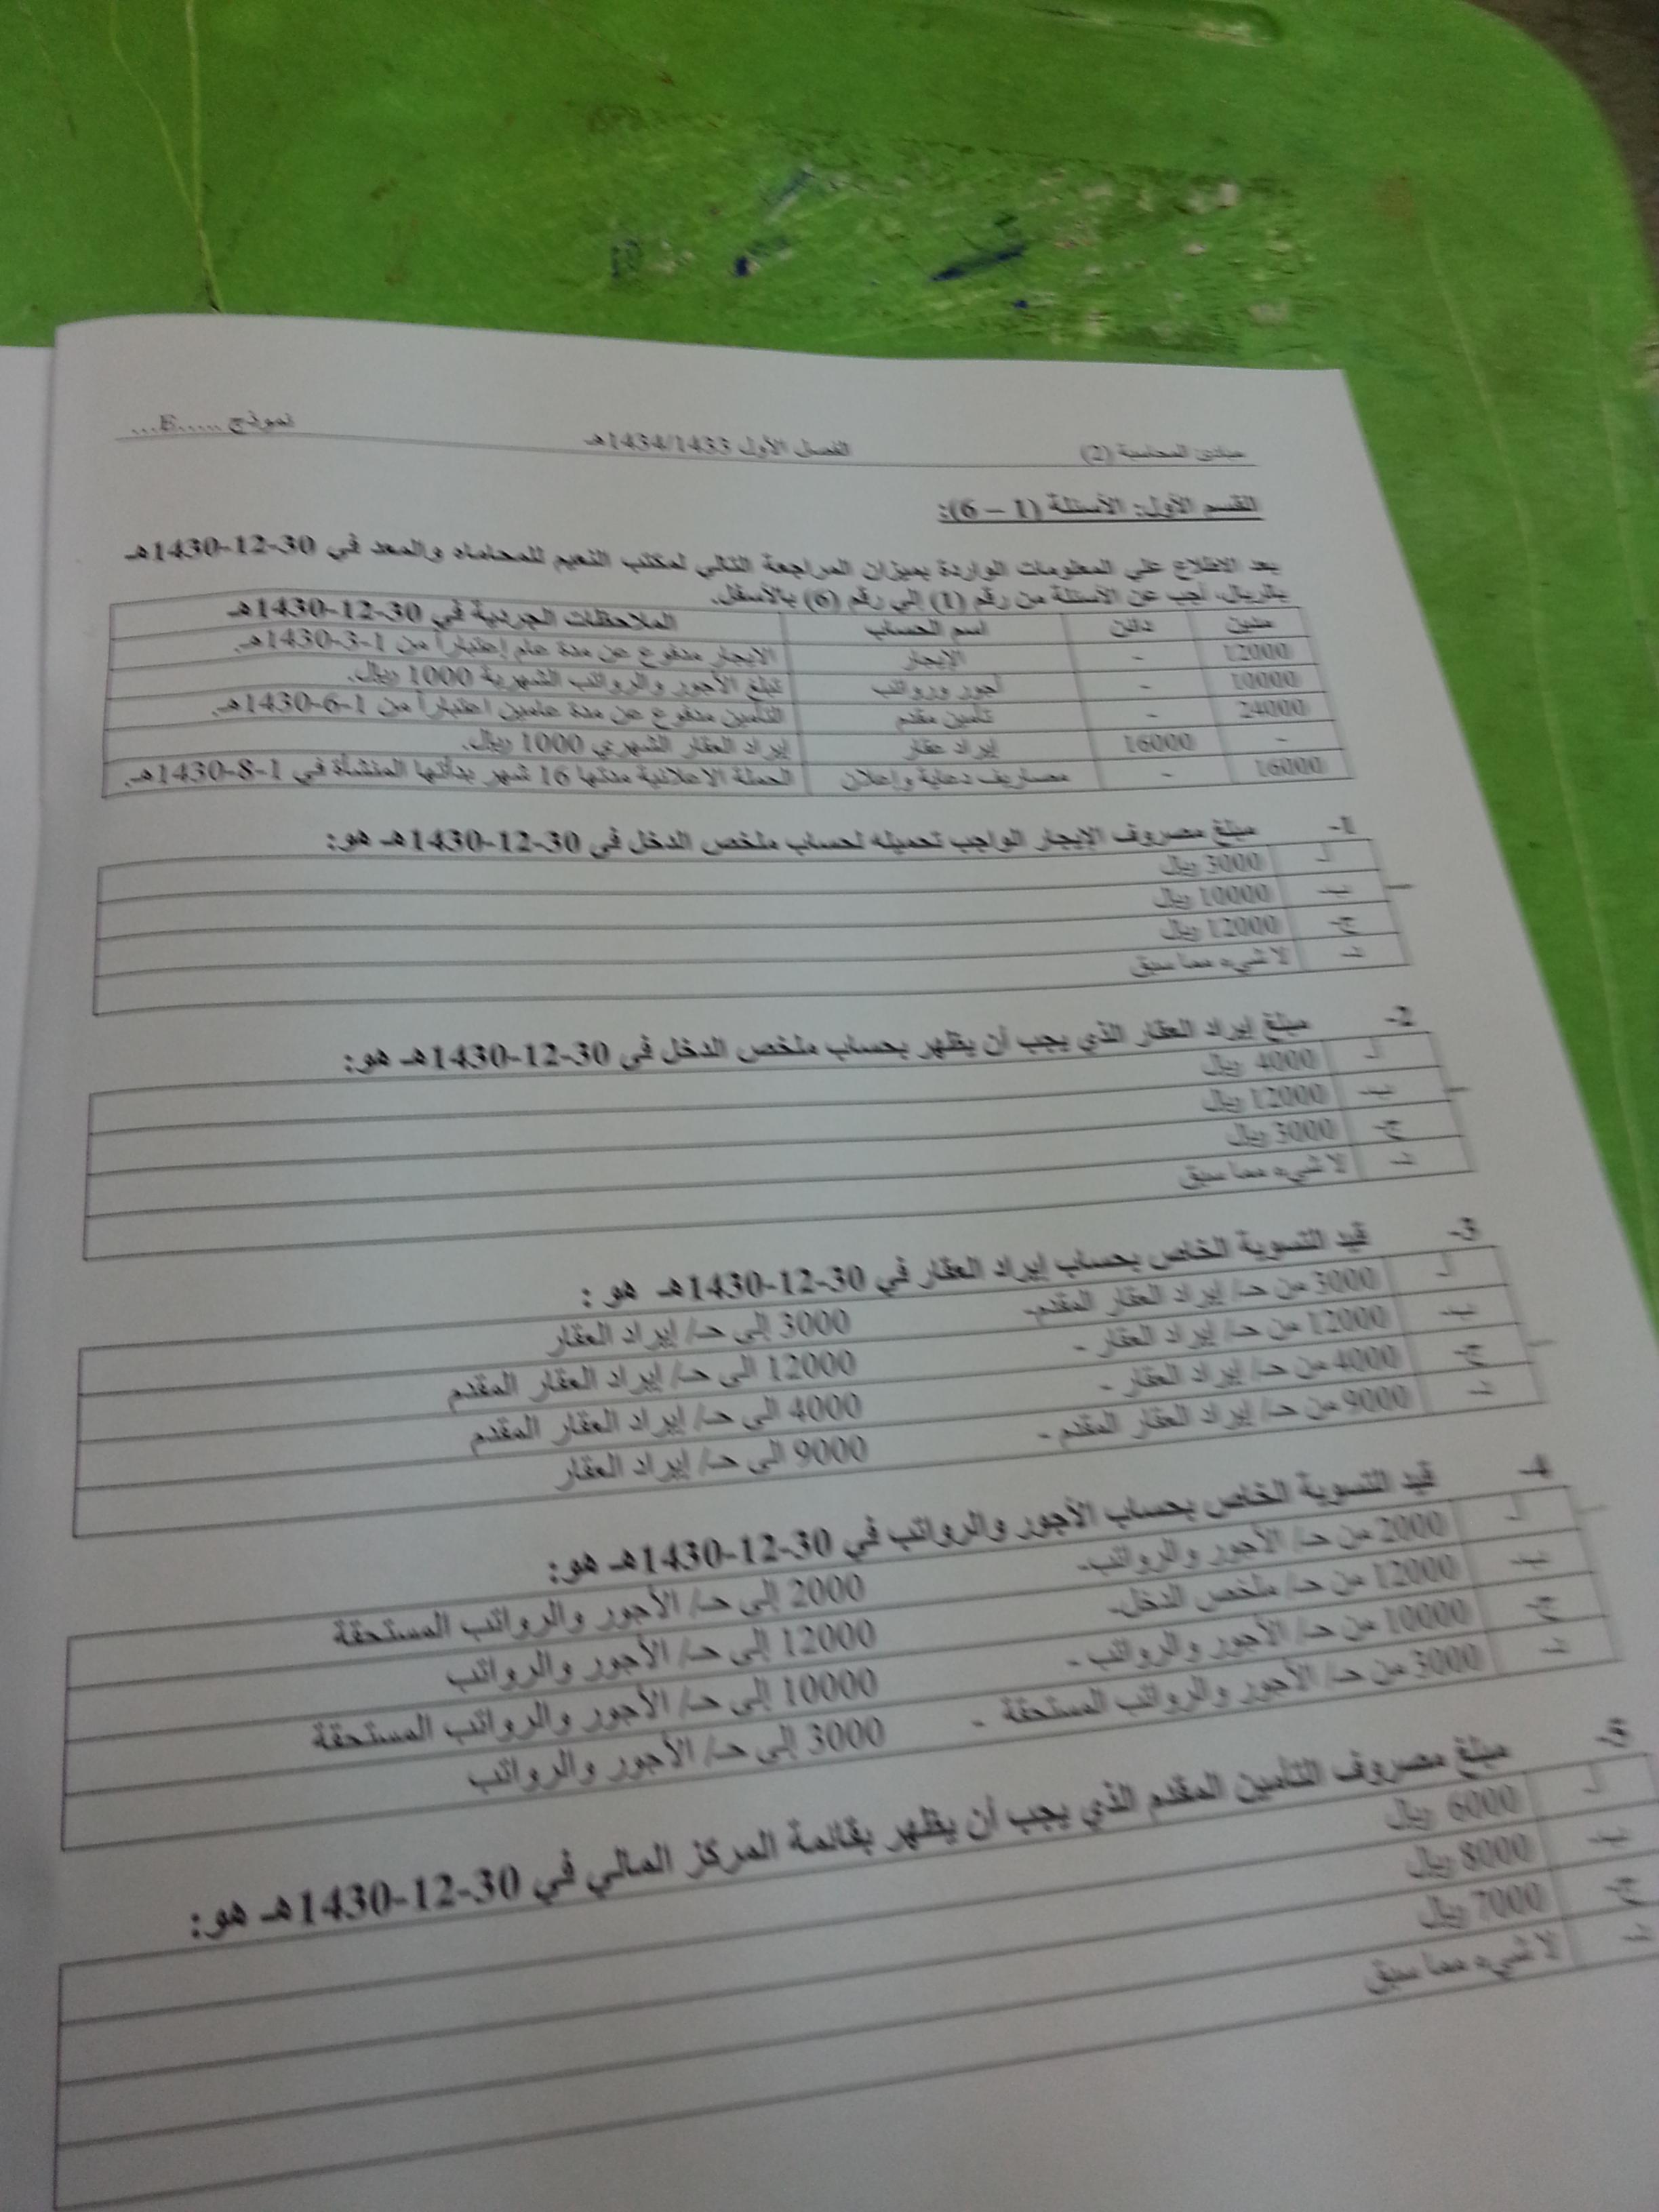 مبادئ المحاسبة (2) الفصل الأول 1434/1433هـ نموذج .....E...
القسم الأول: الأسئلة (1 – 6):
بعد الاطلاع على المعلومات الواردة بميزان المراجعة التالي لمكتب النعيم للمحاماه والمعد في 30-12-1430هـ
بالريال، أجب عن الأسئلة من رقم (1) إلى رقم (6) بالأسفل.
مدين دائن اسم الحساب الملاحظات الجردية في 30-12-1430هـ
12000 - الإيجار الايجار مدفوع عن مدة عام إعتباراً من 1-3-1430هـ.
10000 - أجور ورواتب تبلغ الأجور والرواتب الشهرية 1000 ريال.
24000 - تأمين مقدم التأمين مدفوع عن مدة عامين اعتباراً من 1-6-1430هـ.
- 16000 إيراد عقار إيراد العقار الشهري 1000 ريال.
16000 - مصاريف دعاية وإعلان الحملة الاعلانية مدتها 16 شهر بدأتها المنشأة في 1-8-1430هـ.
1- مبلغ مصروف الإيجار الواجب تحميله لحساب ملخص الدخل في 30-12-1430هـ هو:
أ- 3000 ريال
ب- 10000 ريال
ج- 12000 ريال
د- لا شيء مما سبق
2- مبلغ إيراد العقار الذي يجب أن يظهر بحساب ملخص الدخل في 30-12-1430هـ هو:
أ- 4000 ريال
ب- 12000 ريال
ج- 3000 ريال
د- لا شيء مما سبق
3- قيد التسوية الخاص بحساب إيراد العقار في 30-12-1430هـ هو :
أ- 3000 من حـ/ إيراد العقار المقدم- 3000 إلى حـ/ إيراد العقار
ب- 12000 من حـ/ إيراد العقار - 12000 الى حـ/ إيراد العقار المقدم
ج- 4000 من حـ/ إيراد العقار - 4000 الى حـ/ إيراد العقار المقدم
د- 9000 من حـ/ إيراد العقار المقدم - 9000 الى حـ/ إيراد العقار
4- قيد التسوية الخاص بحساب الأجور والرواتب في 30-12-1430هـ هو:
أ- 2000 من حـ/ الأجور والرواتب- 2000 إلى حـ/ الأجور والرواتب المستحقة
ب- 12000 من حـ/ ملخص الدخل- 12000 إلى حـ/ الأجور والرواتب
ج- 10000 من حـ/ الأجور والرواتب - 10000 إلى حـ/ الأجور والرواتب المستحقة
د- 3000 من حـ/ الأجور والرواتب المستحقة - 3000 إلى حـ/ الأجور والرواتب
5- مبلغ مصروف التأمين المقدم الذي يجب أن يظهر بقائمة المركز المالي في 30-12-1430هـ هو:
أ- 6000 ريال
ب- 8000 ريال
ج- 7000 ريال
د- لا شيء مما سبق